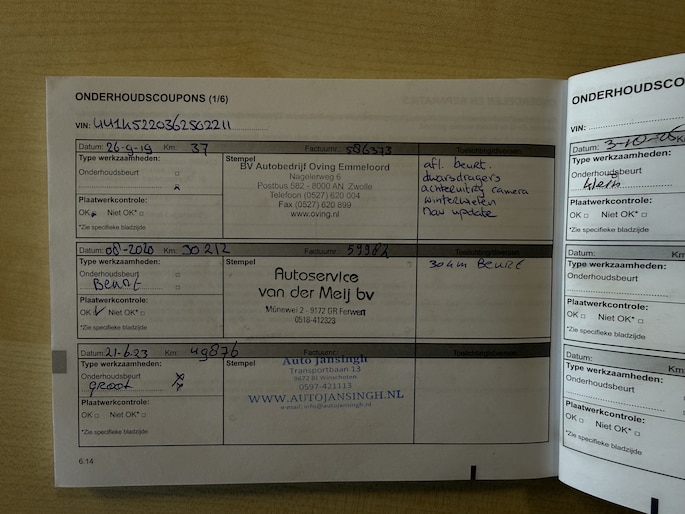 ONDERHOUDSCOUPONS (1/6)
VIN:
Datum: 26-9-19 Km: 37 Factuurnr.: 586373 Toelichting/diversen:
Type werkzaamheden:
Onderhoudsbeurt
Plaatwerkcontrole:
OK Niet OK*
*Zie specifieke bladzijde
Stempel
BV Autobedrijf Oving Emmeloord
Nagelerweg 6
Postbus 582 - 8000 AN Zwolle
Telefoon (0527) 620 004
Fax (0527) 620 899
www.oving.nl
afl. beurt.
dwarsdragers
achteruitrij camera
winterwielen
nav update
Datum: 08-2020 Km: 30212 Factuurnr.: 59982 Toelichting/diversen:
Type werkzaamheden:
Onderhoudsbeurt
Beurt
Plaatwerkcontrole:
OK Niet OK*
*Zie specifieke bladzijde
Stempel
Autoservice
van der Meij bv
Munewei 2 - 9172 GR Ferwert
0518-412323
30 km Beurt
Datum: 21-6-23 Km: 49876 Factuurnr.: Toelichting/diversen:
Type werkzaamheden:
Onderhoudsbeurt
groot
Plaatwerkcontrole:
OK Niet OK*
*Zie specifieke bladzijde
Stempel
Auto Jansingh
Transportbaan 13
9672 BJ Winschoten
0597-421113
WWW.AUTOJANSINGH.NL
e-mail: info@autojansingh.nl
6.14
ONDERHOUDSCO
VIN:
Datum: 3-10-
Type werkzaamheden:
Klein
Plaatwerkcontrole:
OK Niet OK*
*Zie specifieke bladzijde
Datum: Km:
Type werkzaamheden:
Onderhoudsbeurt
Plaatwerkcontrole:
OK Niet OK*
*Zie specifieke bladzijde
Datum: Km:
Type werkzaamheden:
Onderhoudsbeurt
Plaatwerkcontrole:
OK Niet OK*
*Zie specifieke bladzijde